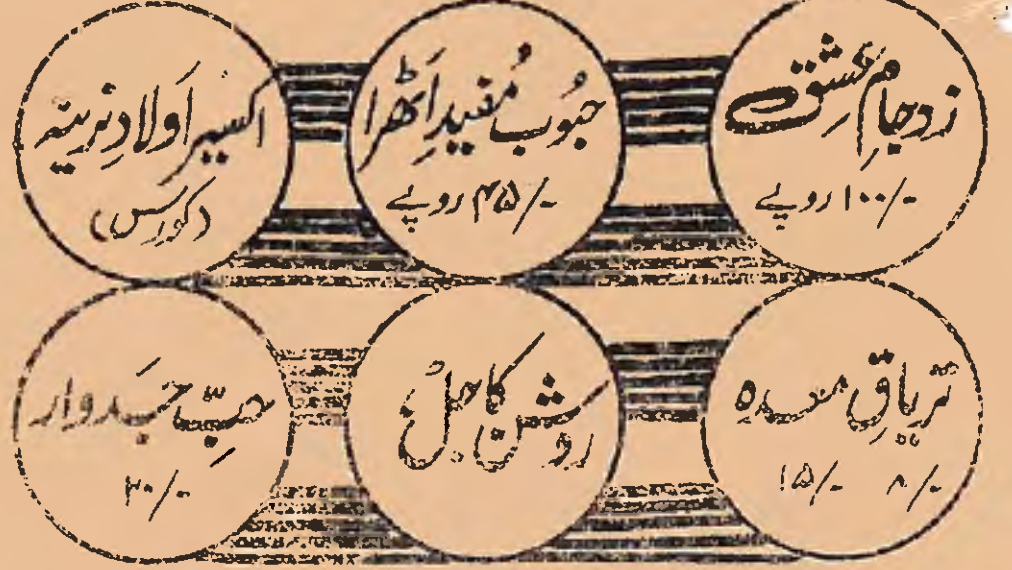 زدجام عشق
۱۰۰/- روپے
حبُوب مُفیدِ اَٹھرا
۴۵/- روپے
اکسیر اَولادِ نرینہ
(کورس)
تریاقِ معدہ
۸/- ۱۵/-
روشن کاجل
حبِّ جَدوار
۳۰/-